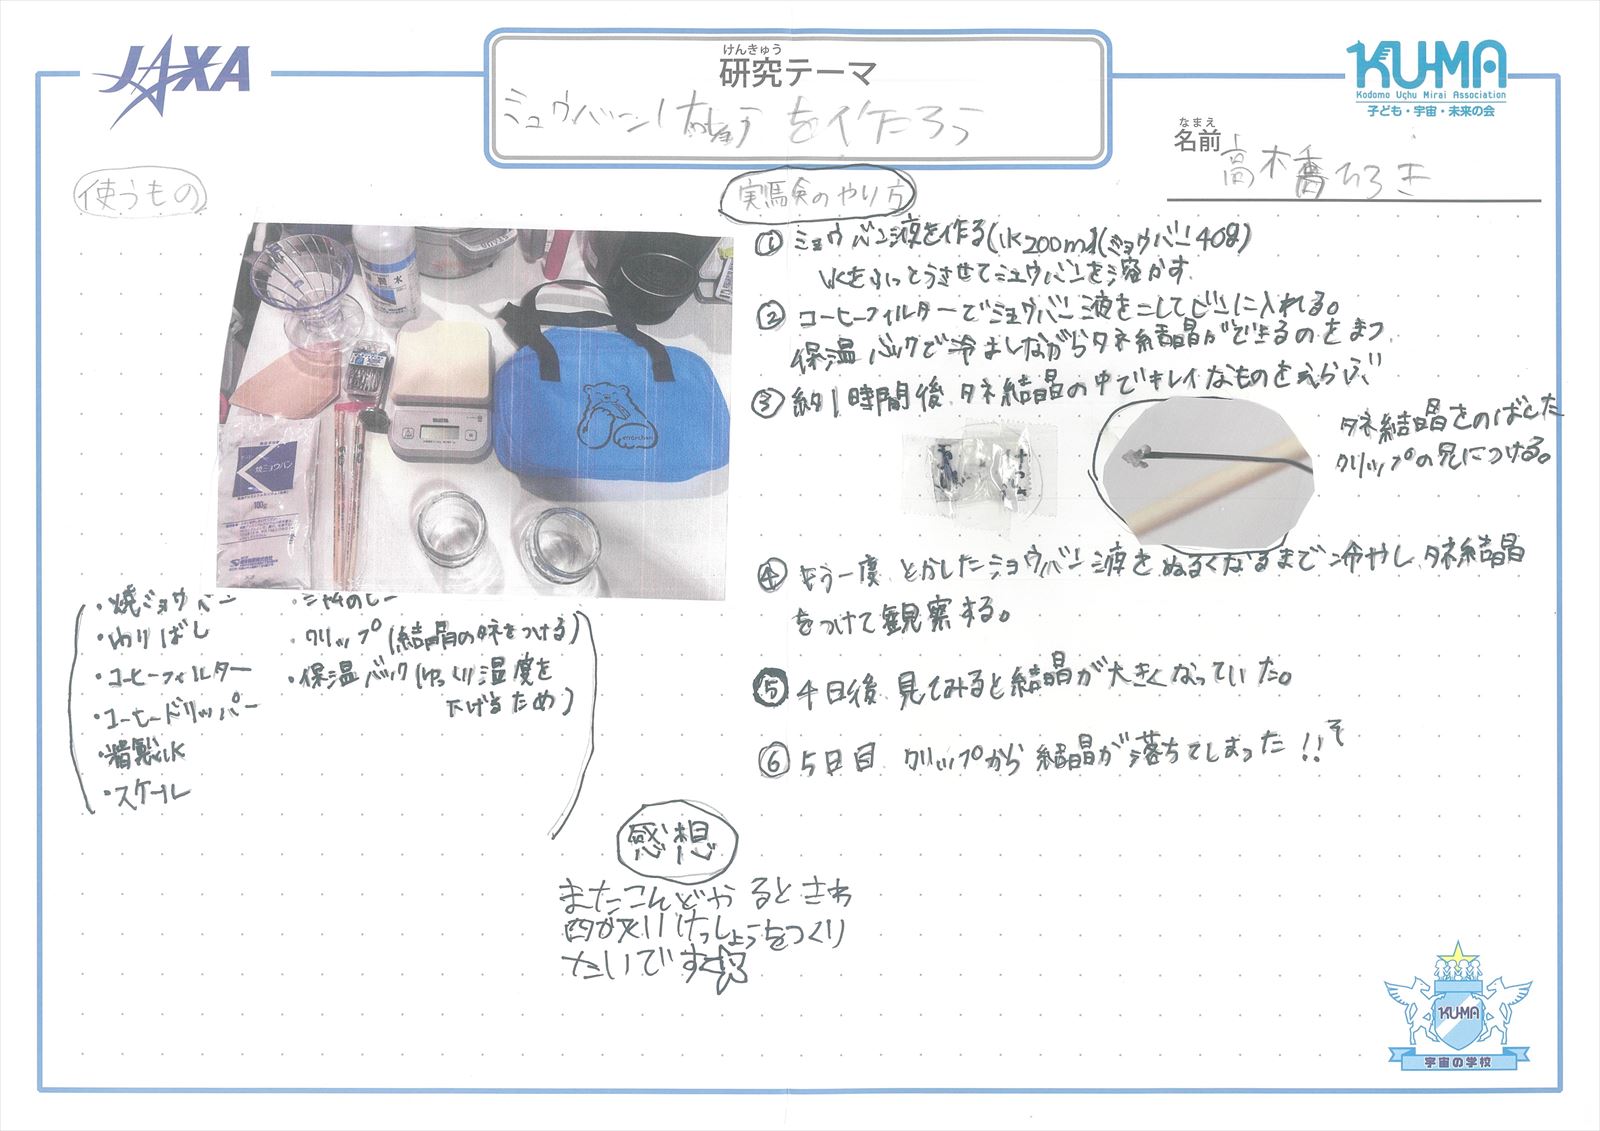 JAXA
けんきゅう
研究テーマ
ミュウバンけっしょうを作ろう
KU-MA
Kodomo Uchu Mirai Association
子ども・宇宙・未来の会
なまえ
名前
高橋ひろき
使うもの
焼ミョウバン
100g
・焼ミョウバン
・わりばし
・コーヒーフィルター
・コーヒードリッパー
・精製水
・スケール
・クリップ(結晶のタネをつける)
・保温バック(ゆっくり温度を
下げるため)
実験のやり方
① ミョウバン液を作る(水200ml(ミョウバン40g)
水をふっとうさせてミュウバンを溶かす
② コーヒーフィルターでミョウバン液をこしてビンに入れる。
保温バックで冷ましながらタネ結晶ができるのをまつ
③ 約1時間後 タネ結晶の中でキレイなものをえらぶ
タネ結晶をのばした
クリップの先につける。
④ もう一度 とかしたミョウバン液をぬるくなるまで冷やし タネ結晶
をつけて観察する。
⑤ 4日後 見てみると結晶が大きくなっていた。
⑥ 5日目 クリップから結晶が落ちてしまった!!
感想
またこんどやるときわ
四か又11けっしょうをつくり
たいです☆
KU-MA
宇宙の学校